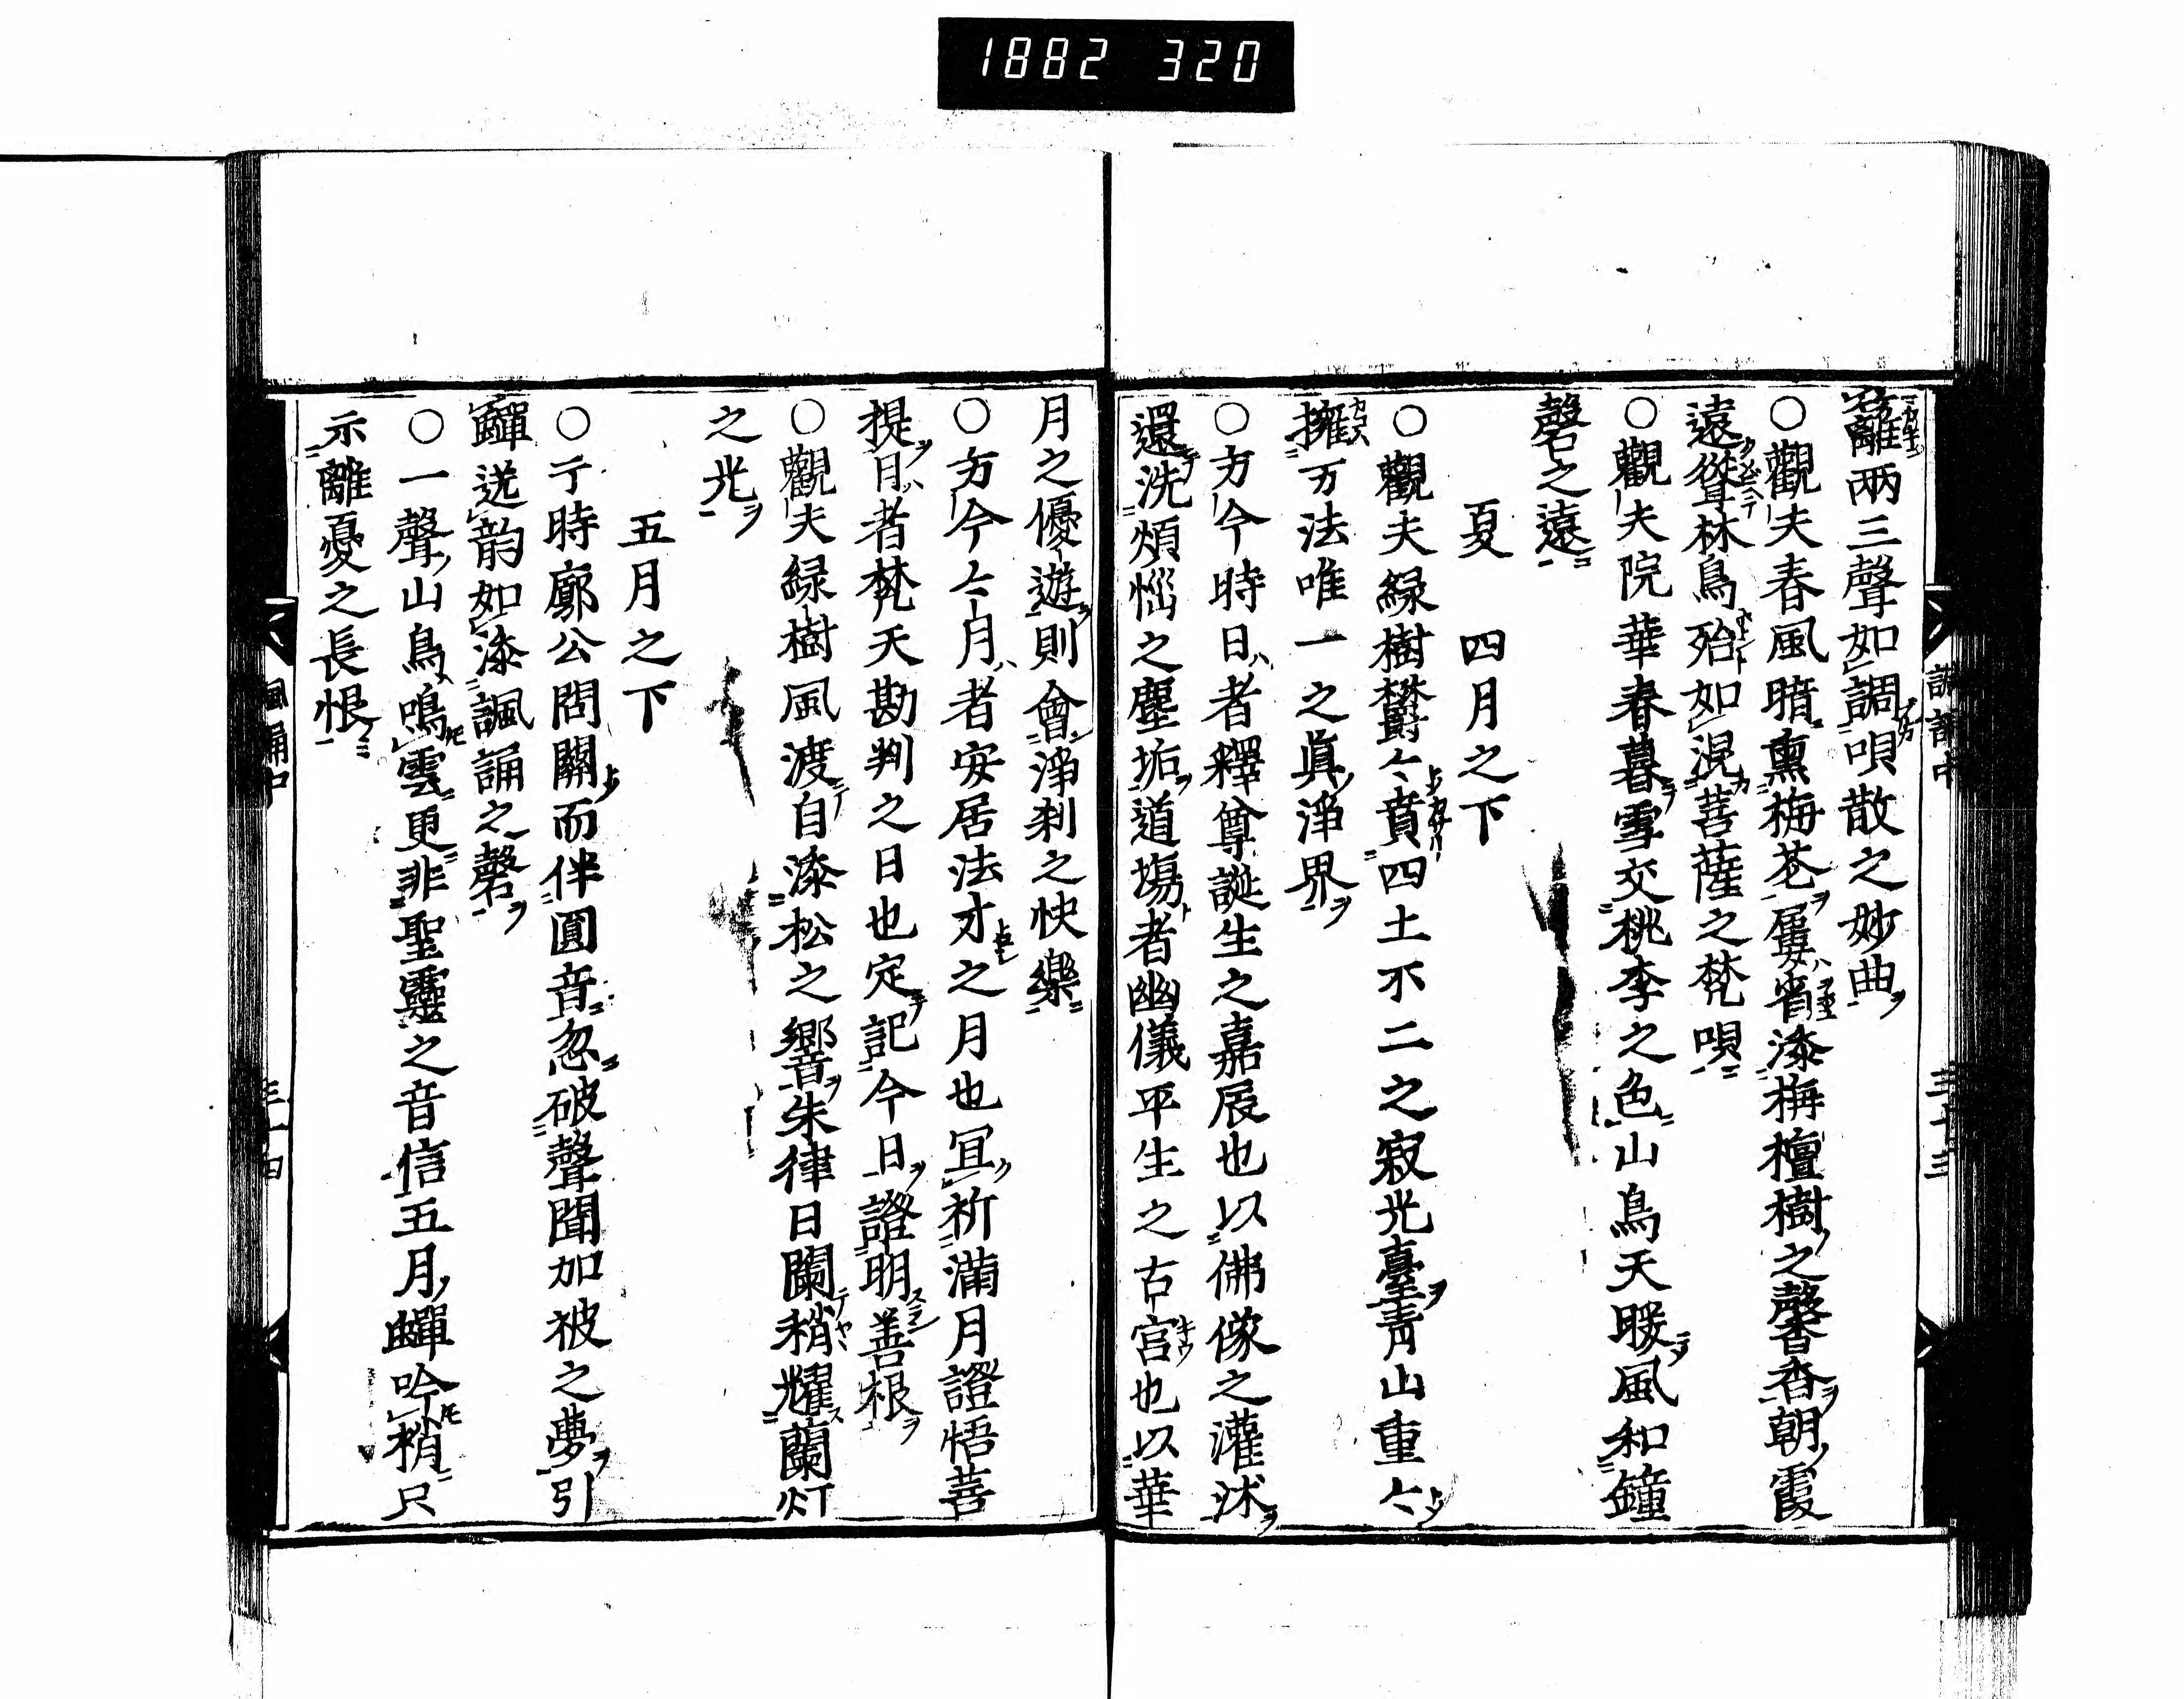 1882 320
籬兩三聲如調唄散之妙曲
○觀夫春風暗熏梅花屢添栴檀樹之馨香朝霞
遠聳林鳥殆如混菩薩之梵唄
○觀夫院華春暮雪交桃李之色山鳥天暖風和鐘
磬之遠
夏 四月之下
○觀夫緑樹欝々賁四土不二之寂光臺青山重々
擁万法唯一之眞淨界
○方今時日者釋尊誕生之嘉辰也以佛像之灌沐
還洗煩惱之塵垢道塲者幽儀平生之古宮也以華
諷誦中
三十三
月之優遊則會淨刹之快樂
○方今々月者安居法才之月也冝祈滿月證悟菩
提日者梵天勘判之日也定記今日證明善根
○觀夫緑樹風渡自添松之響朱律日闌稍耀蘭灯
之光
五月之下
○于時廓公問關而伴圓音忽破聲聞加被之夢引
蟬送韵如添諷誦之磬
○一聲山鳥鳴雲更非聖靈之音信五月蟬吟梢只
示離憂之長恨
諷誦中
三十四